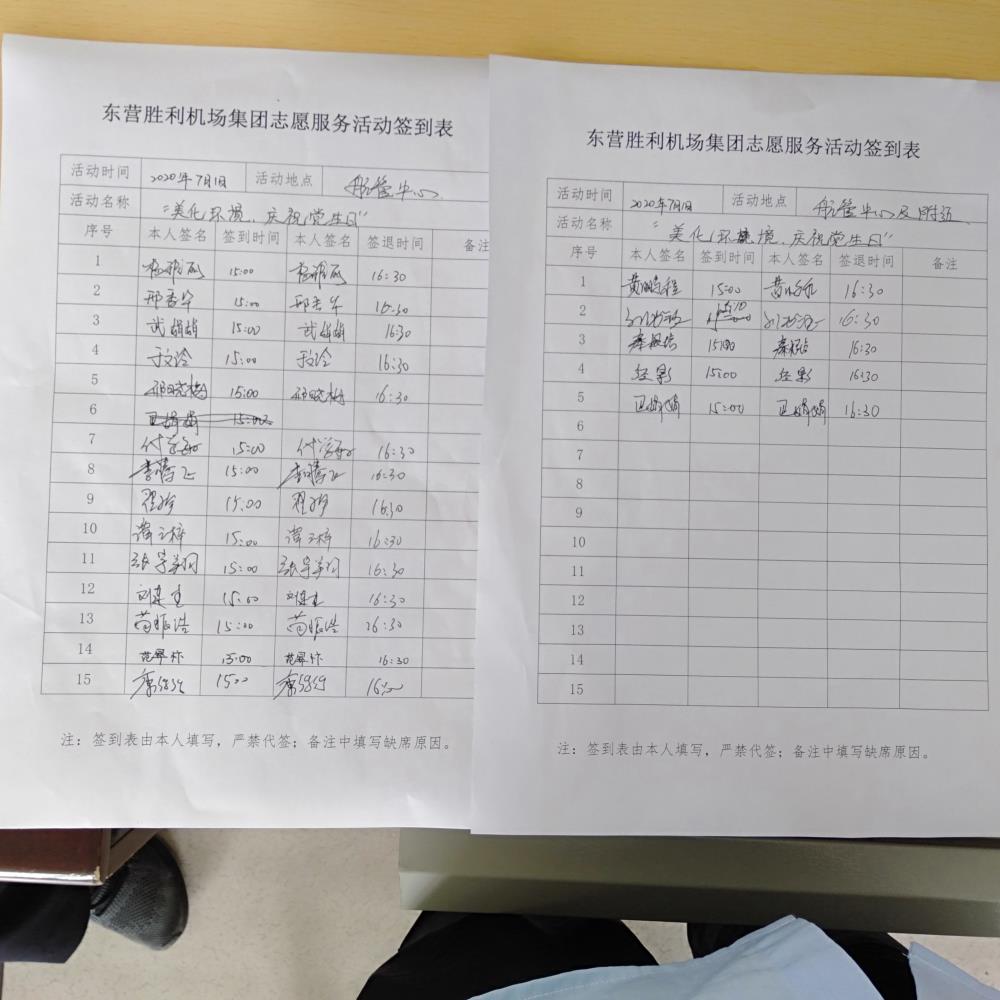 东营胜利机场集团志愿服务活动签到表
活动时间 2020年7月1日 活动地点 航管中心
活动名称 "美化环境、庆祝党生日"
序号 本人签名 签到时间 本人签名 签退时间 备注
1 15:00 16:30
2 邢秀华 15:00 邢秀华 16:30
3 武娟娟 15:00 武娟娟 16:30
4 于文泠 15:00 于文泠 16:30
5 15:00 16:30
6 卫娟娟 15:00
7 15:00 16:30
8 李腾飞 15:00 李腾飞 16:30
9 程婷 15:00 程婷 16:30
10 15:00 16:30
11 15:00 16:30
12 15:00 16:30
13 苗振浩 15:00 苗振浩 16:30
14 15:00 16:30
15 1500
注：签到表由本人填写，严禁代签；备注中填写缺席原因。
东营胜利机场集团志愿服务活动签到表
活动时间 2020年7月1日 活动地点 航管中心及附近
活动名称 "美化环境、庆祝党生日"
序号 本人签名 签到时间 本人签名 签退时间 备注
1 黄鹏程 15:00 黄鹏程 16:30
2 15:10 16:30
3 15:00 16:30
4 15:00 16:30
5 卫娟娟 15:00 卫娟娟 16:30
6
7
8
9
10
11
12
13
14
15
注：签到表由本人填写，严禁代签；备注中填写缺席原因。